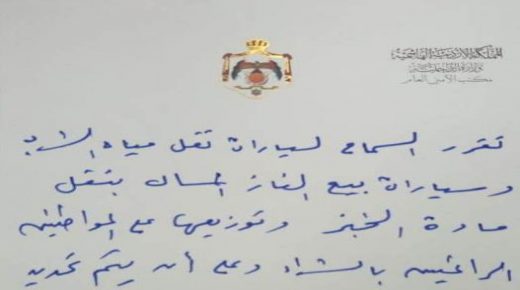 المملكة الأردنية الهاشمية
وزارة الداخلية
مكتب الأمين العام
تقرر السماح لسيارات نقل مياه الشرب
وسيارات بيع الغاز المسال بنقل
مادة الخبز وتوزيعها على المواطنين
الراغبين بالشراء وعلى أن يتم تحديد